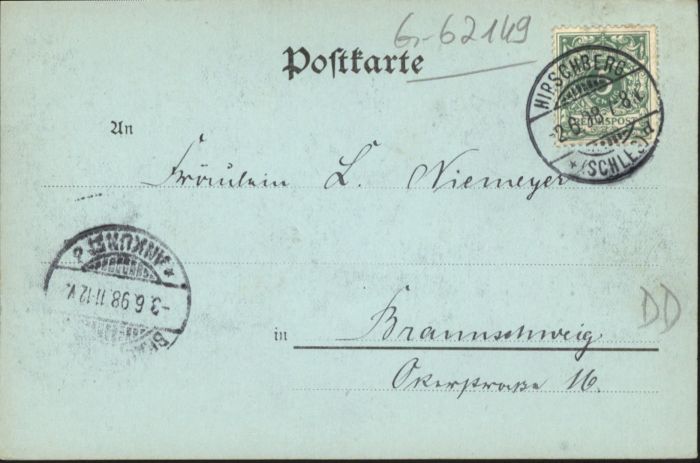 Gr-62149
Postkarte
REICHSPOST
HIRSCHBERG
-2.6.98.7-8N.
*(SCHLES.)*
An
Fräulein L. Niemeyer
* ANKUNFT *
-3.6.98.11-12V.
DD
in Braunschweig
Okerstraße 16.